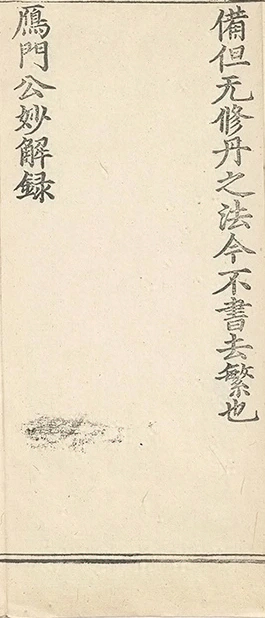 備但无修丹之法今不書去繁也
鴈門公妙解録